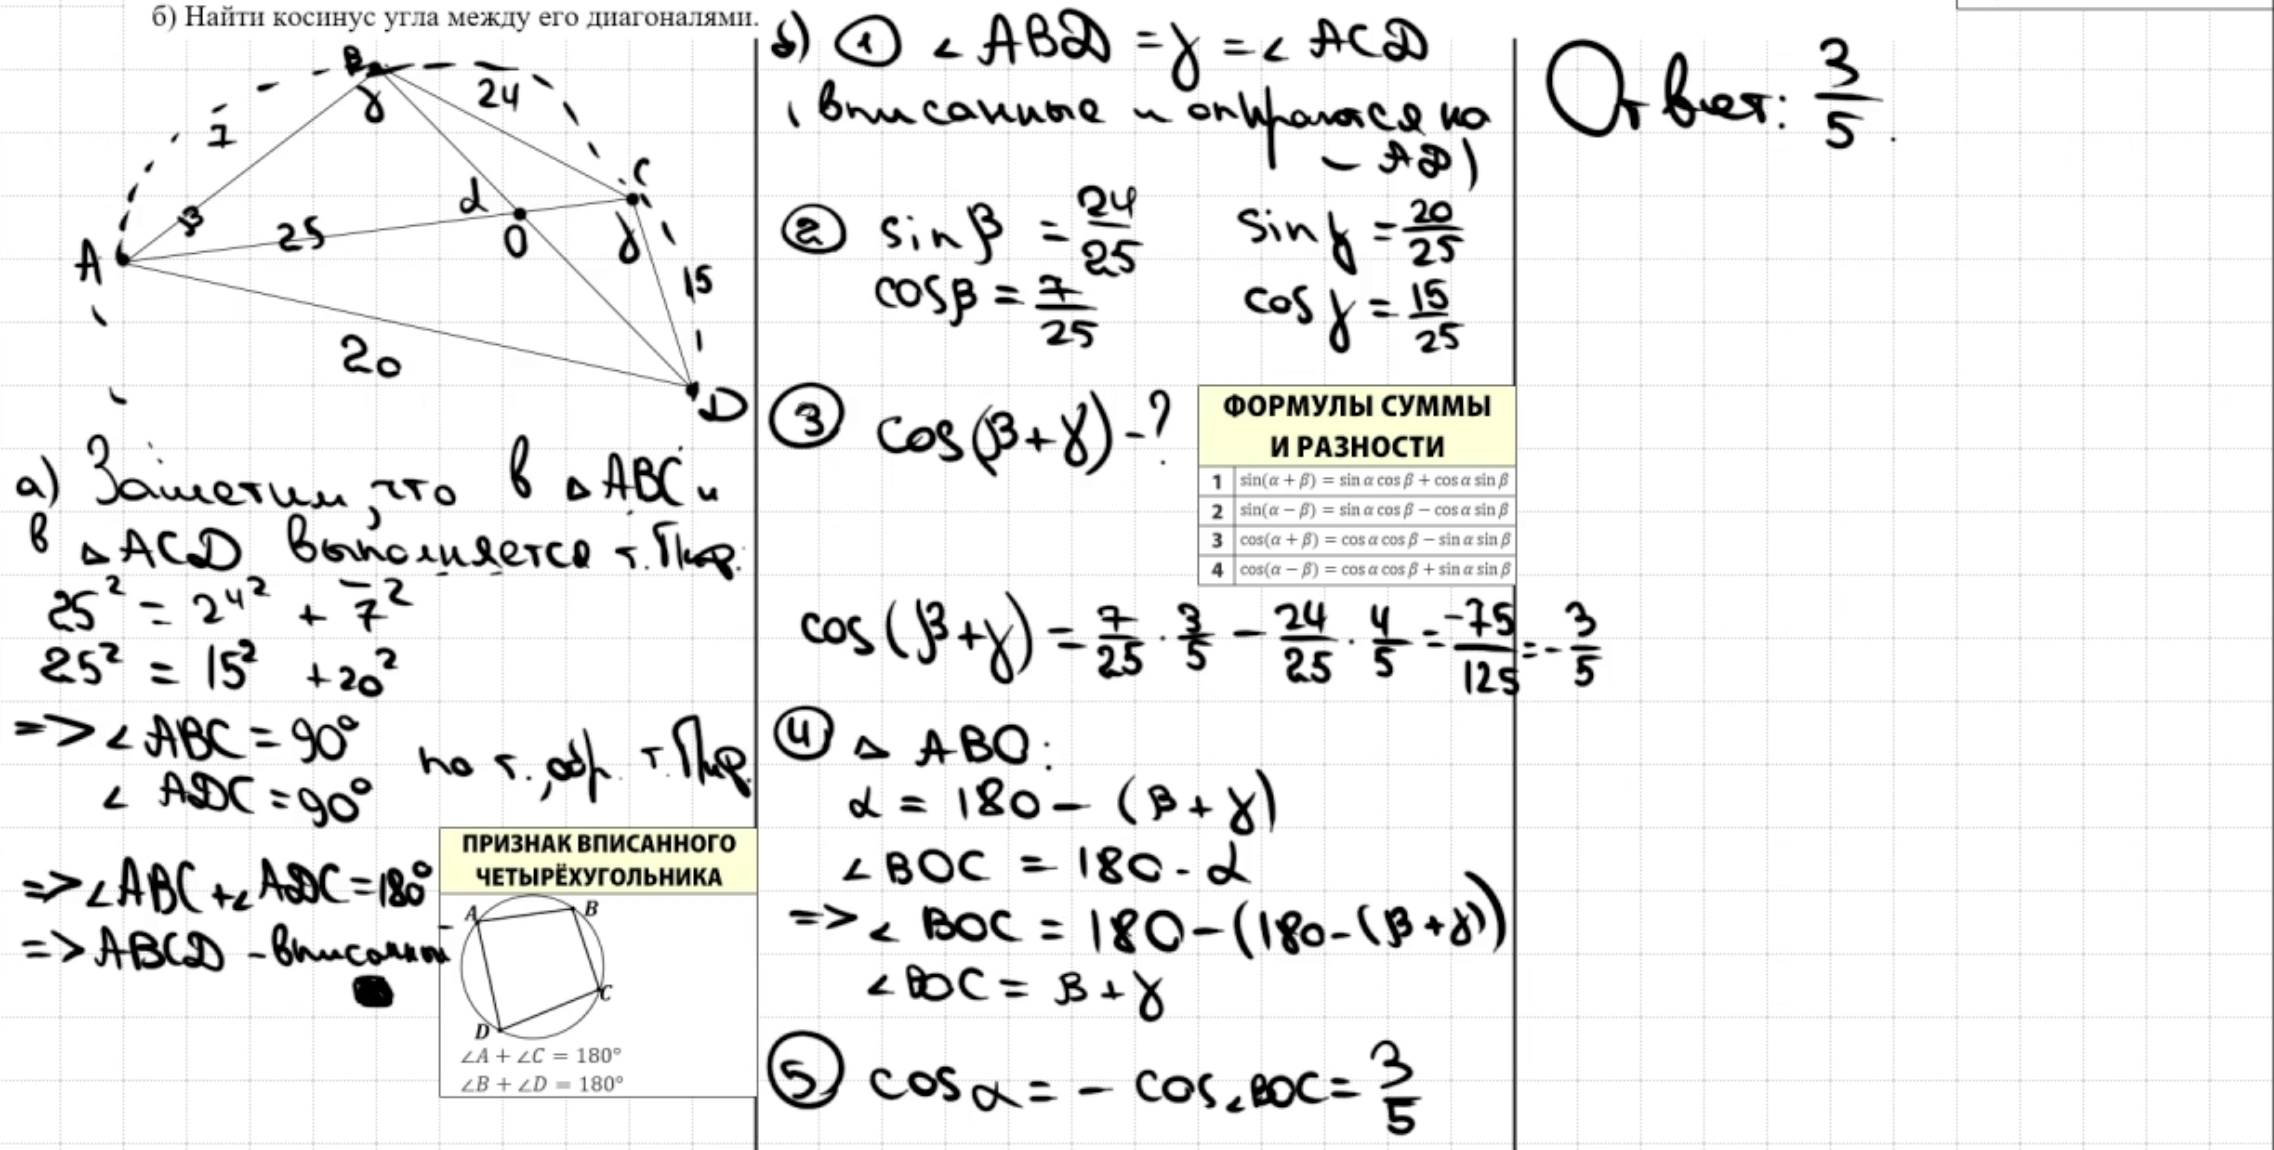 б) Найти косинус угла между его диагоналями.
B
γ
24
7
C
α
β
25
O
γ
A
15
20
D
а) Заметим, что в △ABC и
в △ACD выполняется т. Пиф.
25² = 24² + 7²
25² = 15² + 20²
=> ∠ABC = 90°
∠ADC = 90°
по т., обр. т. Пиф.
=> ∠ABC + ∠ADC = 180°
=> ABCD - вписанный
ПРИЗНАК ВПИСАННОГО
ЧЕТЫРЁХУГОЛЬНИКА
A
B
C
D
∠A + ∠C = 180°
∠B + ∠D = 180°
б) ① ∠ABD = γ = ∠ACD
(вписанные и опираются на
◡ AD)
② sin β = 24/25 sin γ = 20/25
cos β = 7/25 cos γ = 15/25
③ cos(β + γ) - ?
ФОРМУЛЫ СУММЫ
И РАЗНОСТИ
1 sin(α + β) = sin α cos β + cos α sin β
2 sin(α − β) = sin α cos β − cos α sin β
3 cos(α + β) = cos α cos β − sin α sin β
4 cos(α − β) = cos α cos β + sin α sin β
cos(β + γ) = 7/25 · 3/5 − 24/25 · 4/5 = -75/125 = -3/5
④ △ ABO:
α = 180 − (β + γ)
∠BOC = 180 - α
=> ∠BOC = 180 − (180 - (β + γ))
∠BOC = β + γ
⑤ cos α = - cos∠BOC = 3/5
Ответ: 3/5.